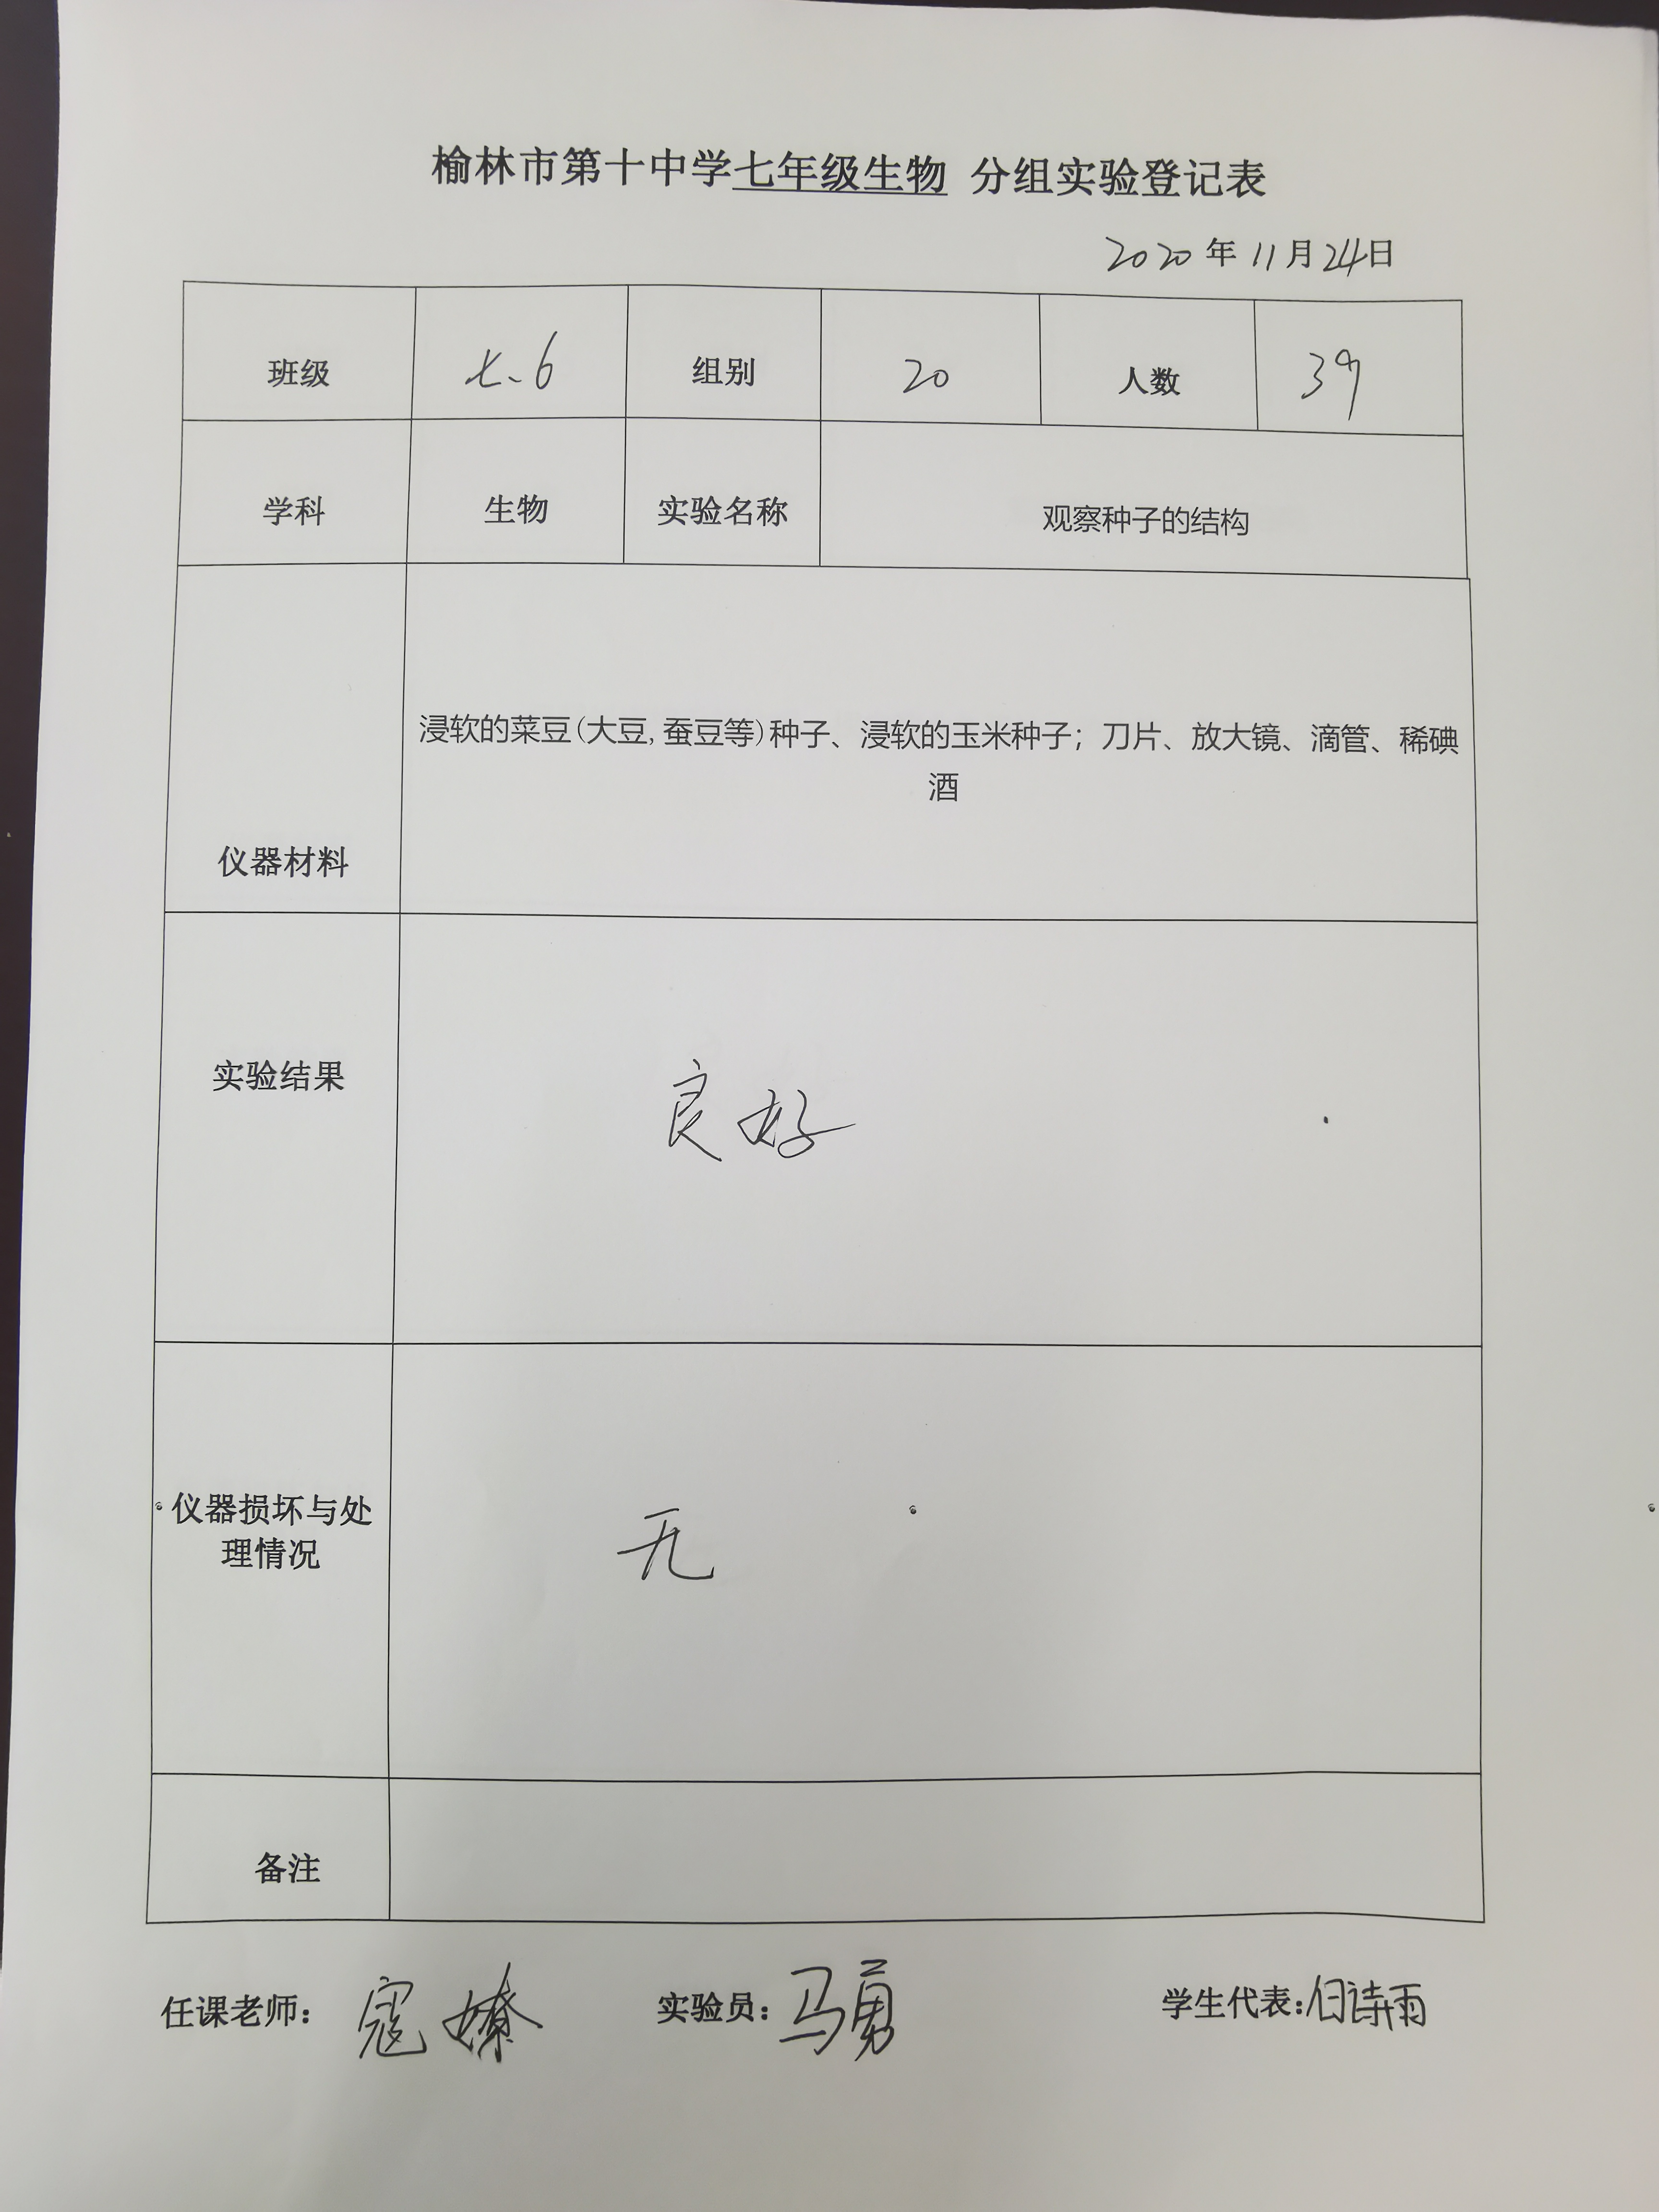 榆林市第十中学七年级生物 分组实验登记表
2020年11月24日
班级 七.6 组别 20 人数 39
学科 生物 实验名称 观察种子的结构
浸软的菜豆(大豆,蚕豆等)种子、浸软的玉米种子;刀片、放大镜、滴管、稀碘
酒
仪器材料
实验结果 良好
仪器损坏与处
理情况 无
备注
任课老师: 寇嫽 实验员: 马勇 学生代表: 白诗雨